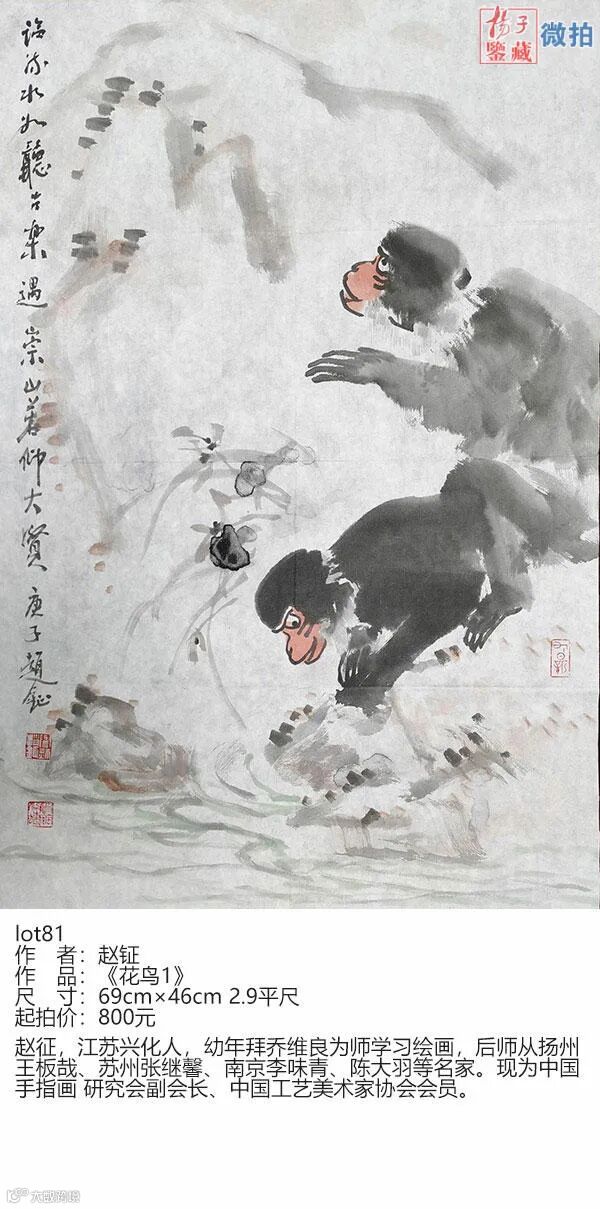 扬子
鉴藏
微拍
临流水如听古乐遇崇山若仰大贤庚子趙鉦
lot81
作　者：赵钲
作　品：《花鸟1》
尺　寸：69cm×46cm 2.9平尺
起拍价：800元
赵征，江苏兴化人，幼年拜乔维良为师学习绘画，后师从扬州
王板哉、苏州张继馨、南京李味青、陈大羽等名家。现为中国
手指画 研究会副会长、中国工艺美术家协会会员。